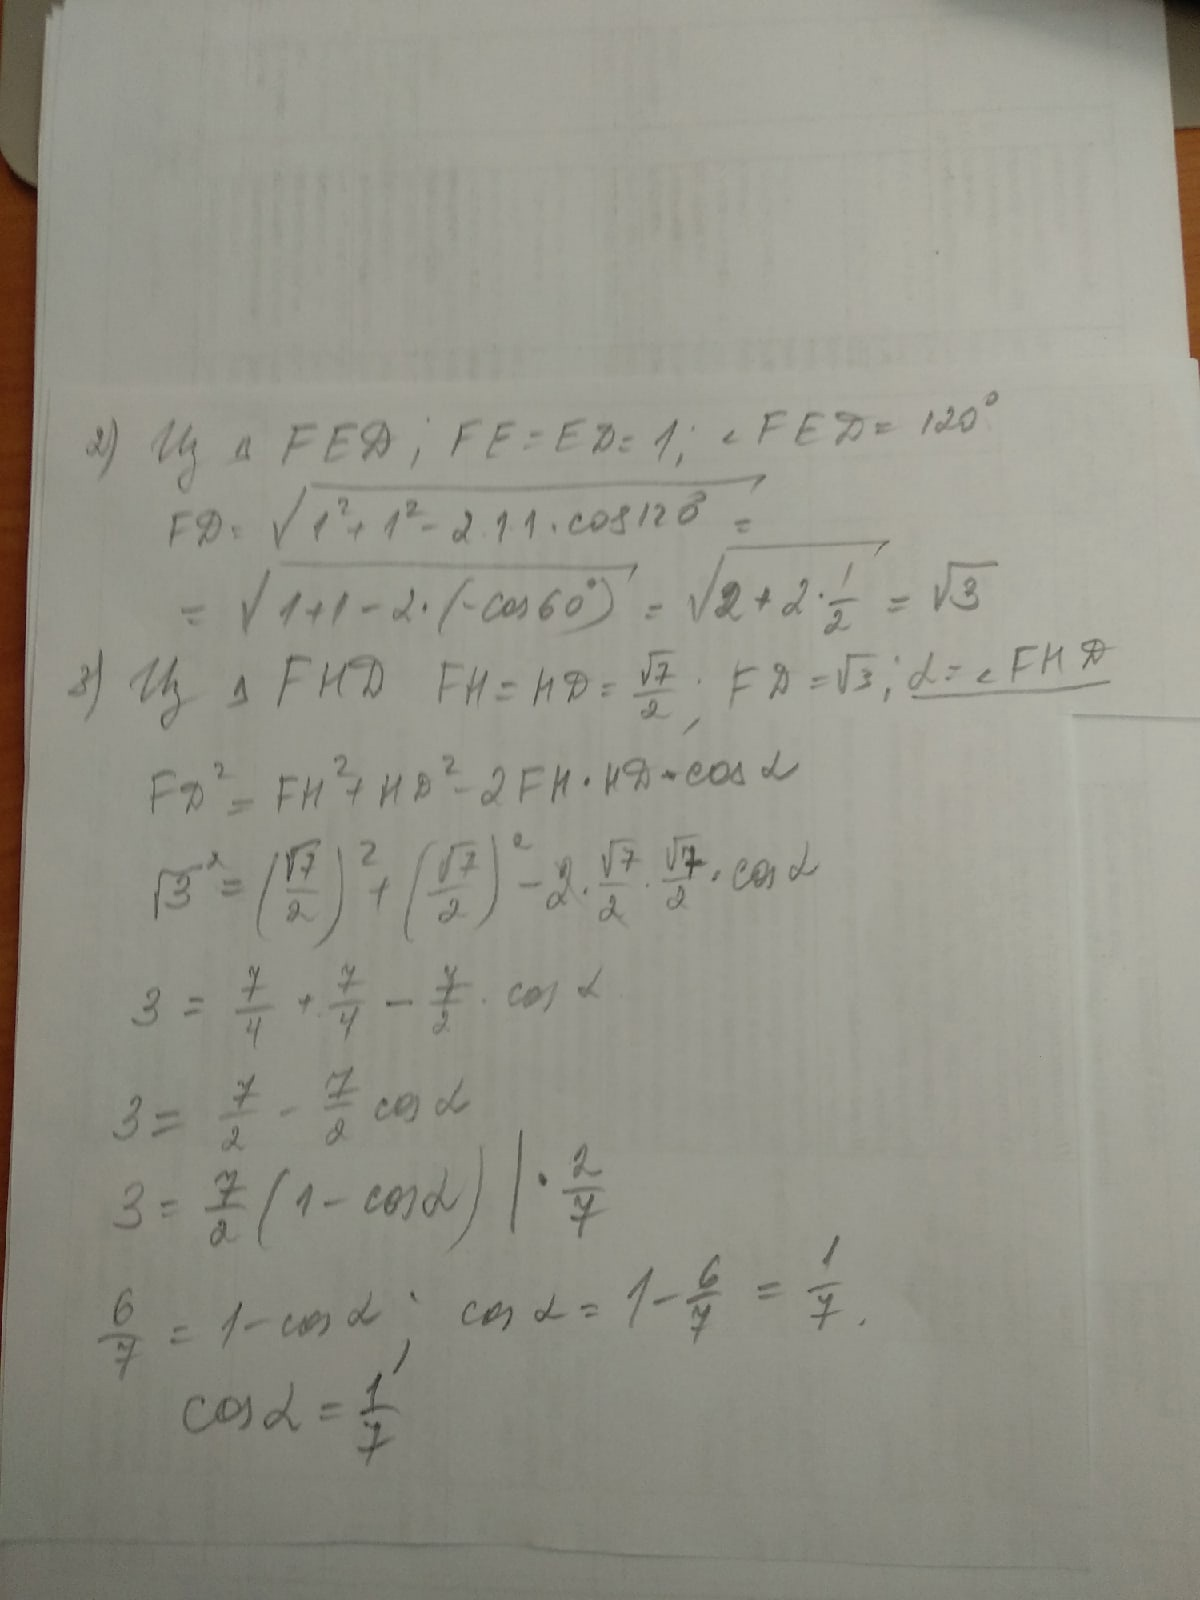 2) Из △ FED; FE = ED = 1; ∠FED = 120°
FD = √(1² + 1² - 2·1·1·cos120° =
= √(1+1-2·(-cos60°)) = √(2+2·1/2) = √3
3) Из △ FHD FH = HD = √7/2; FD = √3; α = ∠FHD
FD² = FH² + HD² - 2FH·HD·cosα
√3² = (√7/2)² + (√7/2)² - 2·√7/2·√7/2·cosα
3 = 7/4 + 7/4 - 7/2·cosα
3 = 7/2 - 7/2 cosα
3 = 7/2 (1 - cosα) |·2/7
6/7 = 1 - cosα; cosα = 1 - 6/7 = 1/7.
cosα = 1/7